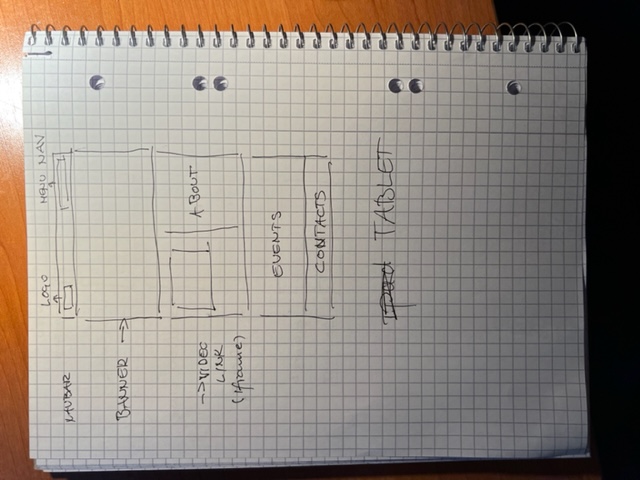 LOGO MENU NAV
NAVBAR
BANNER
->VIDEO
LINK
(Iframe)
ABOUT
EVENTS
CONTACTS
TABLET